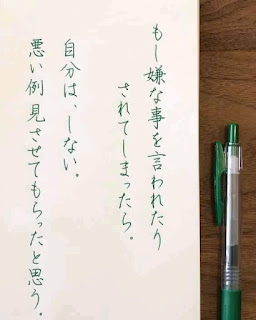 もし嫌な事を言われたり
されてしまったら。
自分は、しない。
悪い例見させてもらったと思う。